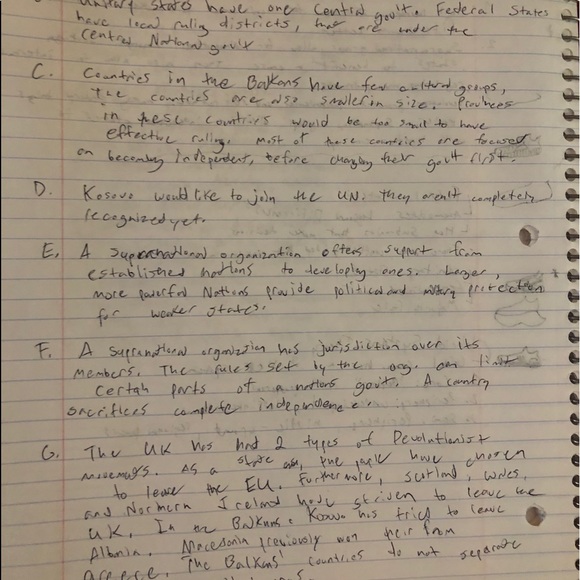 Unitary states have one central gov't. Federal States
have local ruling districts, that are under the
central National gov't
C. Countries in the Balkans have few cultural groups,
The countries are also smaller in size. Provinces
in these countries would be too small to have
effective ruling. Most of these countries are focused
on becoming independent, before changing their gov't first.
D. Kosovo would like to join the UN. They aren't completely
recognized yet.
E. A Supranational organization offers support from
established nations to developing ones. Larger,
more powerful Nations provide political and military protection
for weaker states.
F. A supranational organization has jurisdiction over its
members. The rules set by the org. can limit
certain parts of a nations gov't. A country
sacrifices complete independence.
G. The UK has had 2 types of Devolutionist
movements. As a state, the people have chosen
to leave the EU. Furthermore, Scotland, Wales,
and Northern Ireland have striven to leave the
UK. In the Balkans, Kosovo has tried to leave
Albania. Macedonia previously won their from
Greece. The Balkans' countries do not separate